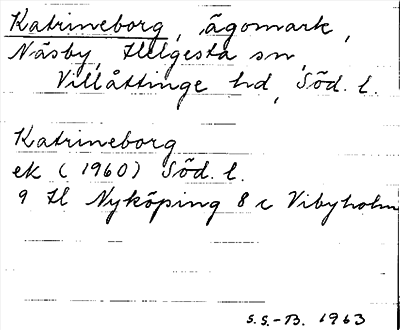 Katrineborg, ägomark,
Näsby, Helgesta sn,
Villåttinge hd, Söd. l.
Katrineborg
ek (1960) Söd. l.
9 H Nyköping 8 c Vibyholm
S.S.-B. 1963